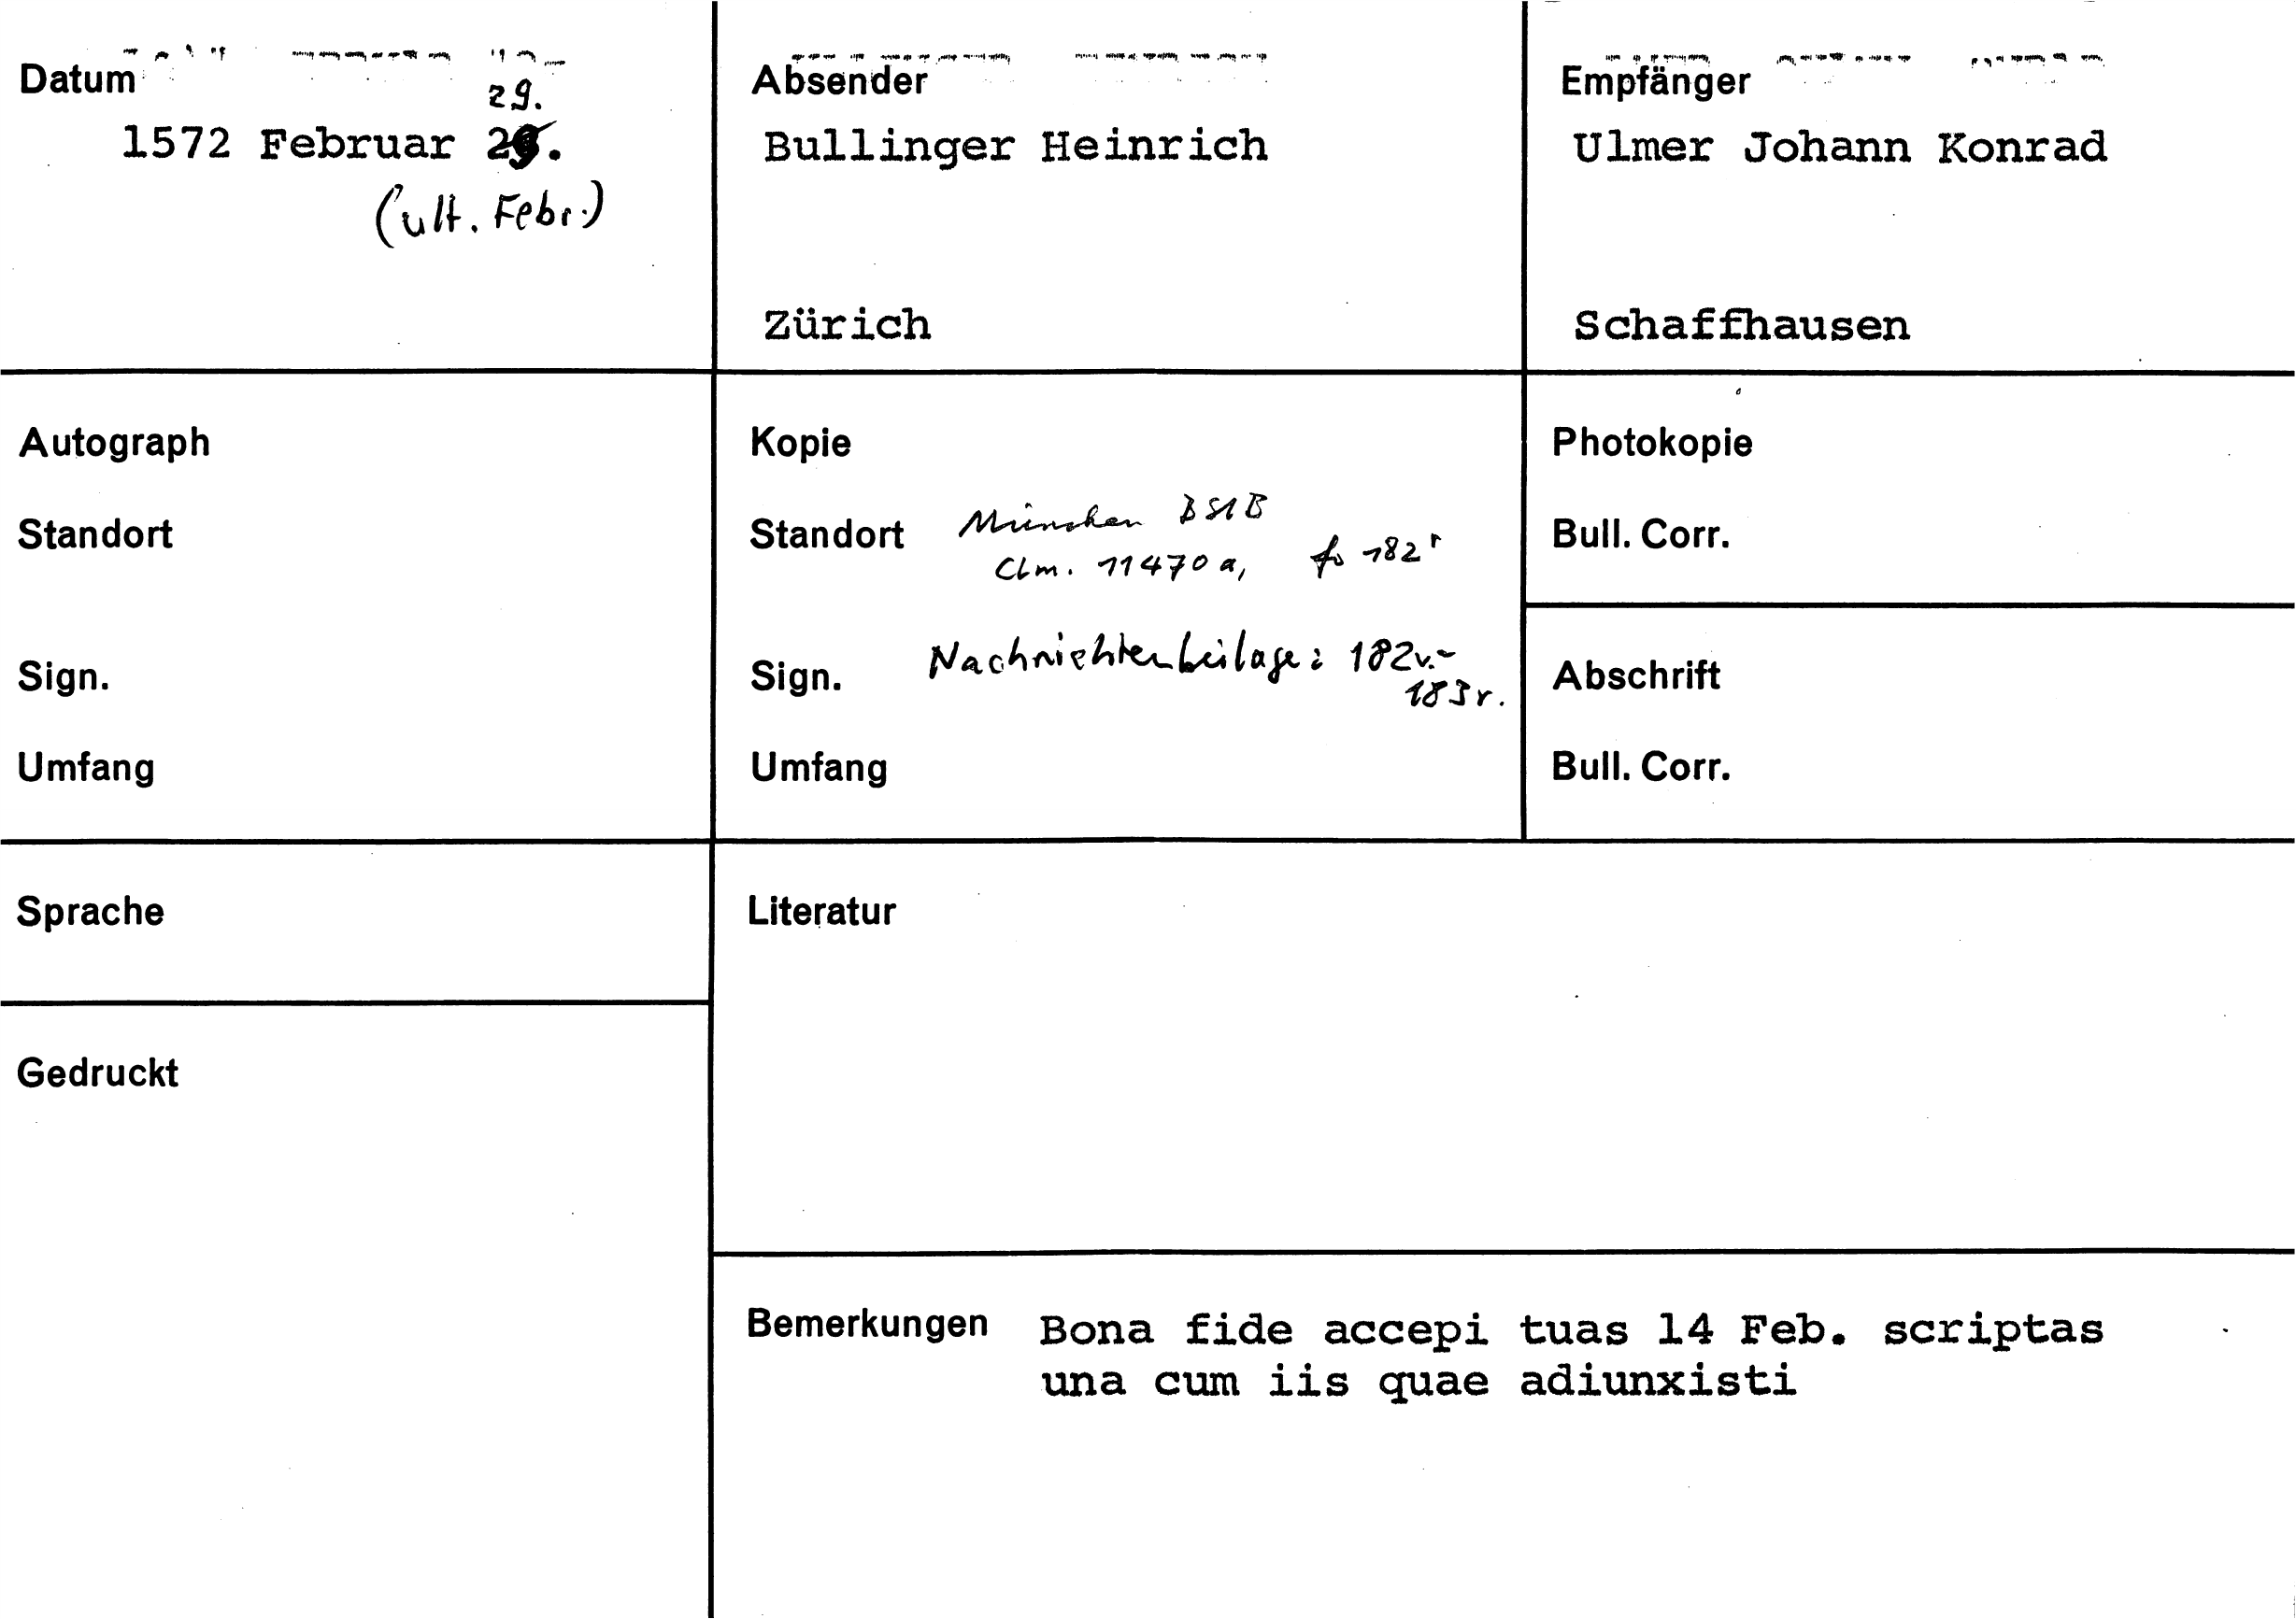 Datum
29.
1572 Februar 29.
(ult. Febr.)
Absender
Bullinger Heinrich
Zürich
Empfänger
Ulmer Johann Konrad
Schaffhausen
Autograph
Standort
Sign.
Umfang
Kopie
Standort München BStB
Clm. 11470a, fo 182r
Sign. Nachrichtenbeilage: 182v.-
183r.
Umfang
Photokopie
Bull. Corr.
Abschrift
Bull. Corr.
Sprache
Literatur
Gedruckt
Bemerkungen Bona fide accepi tuas 14 Feb. scriptas
una cum iis quae adiunxisti